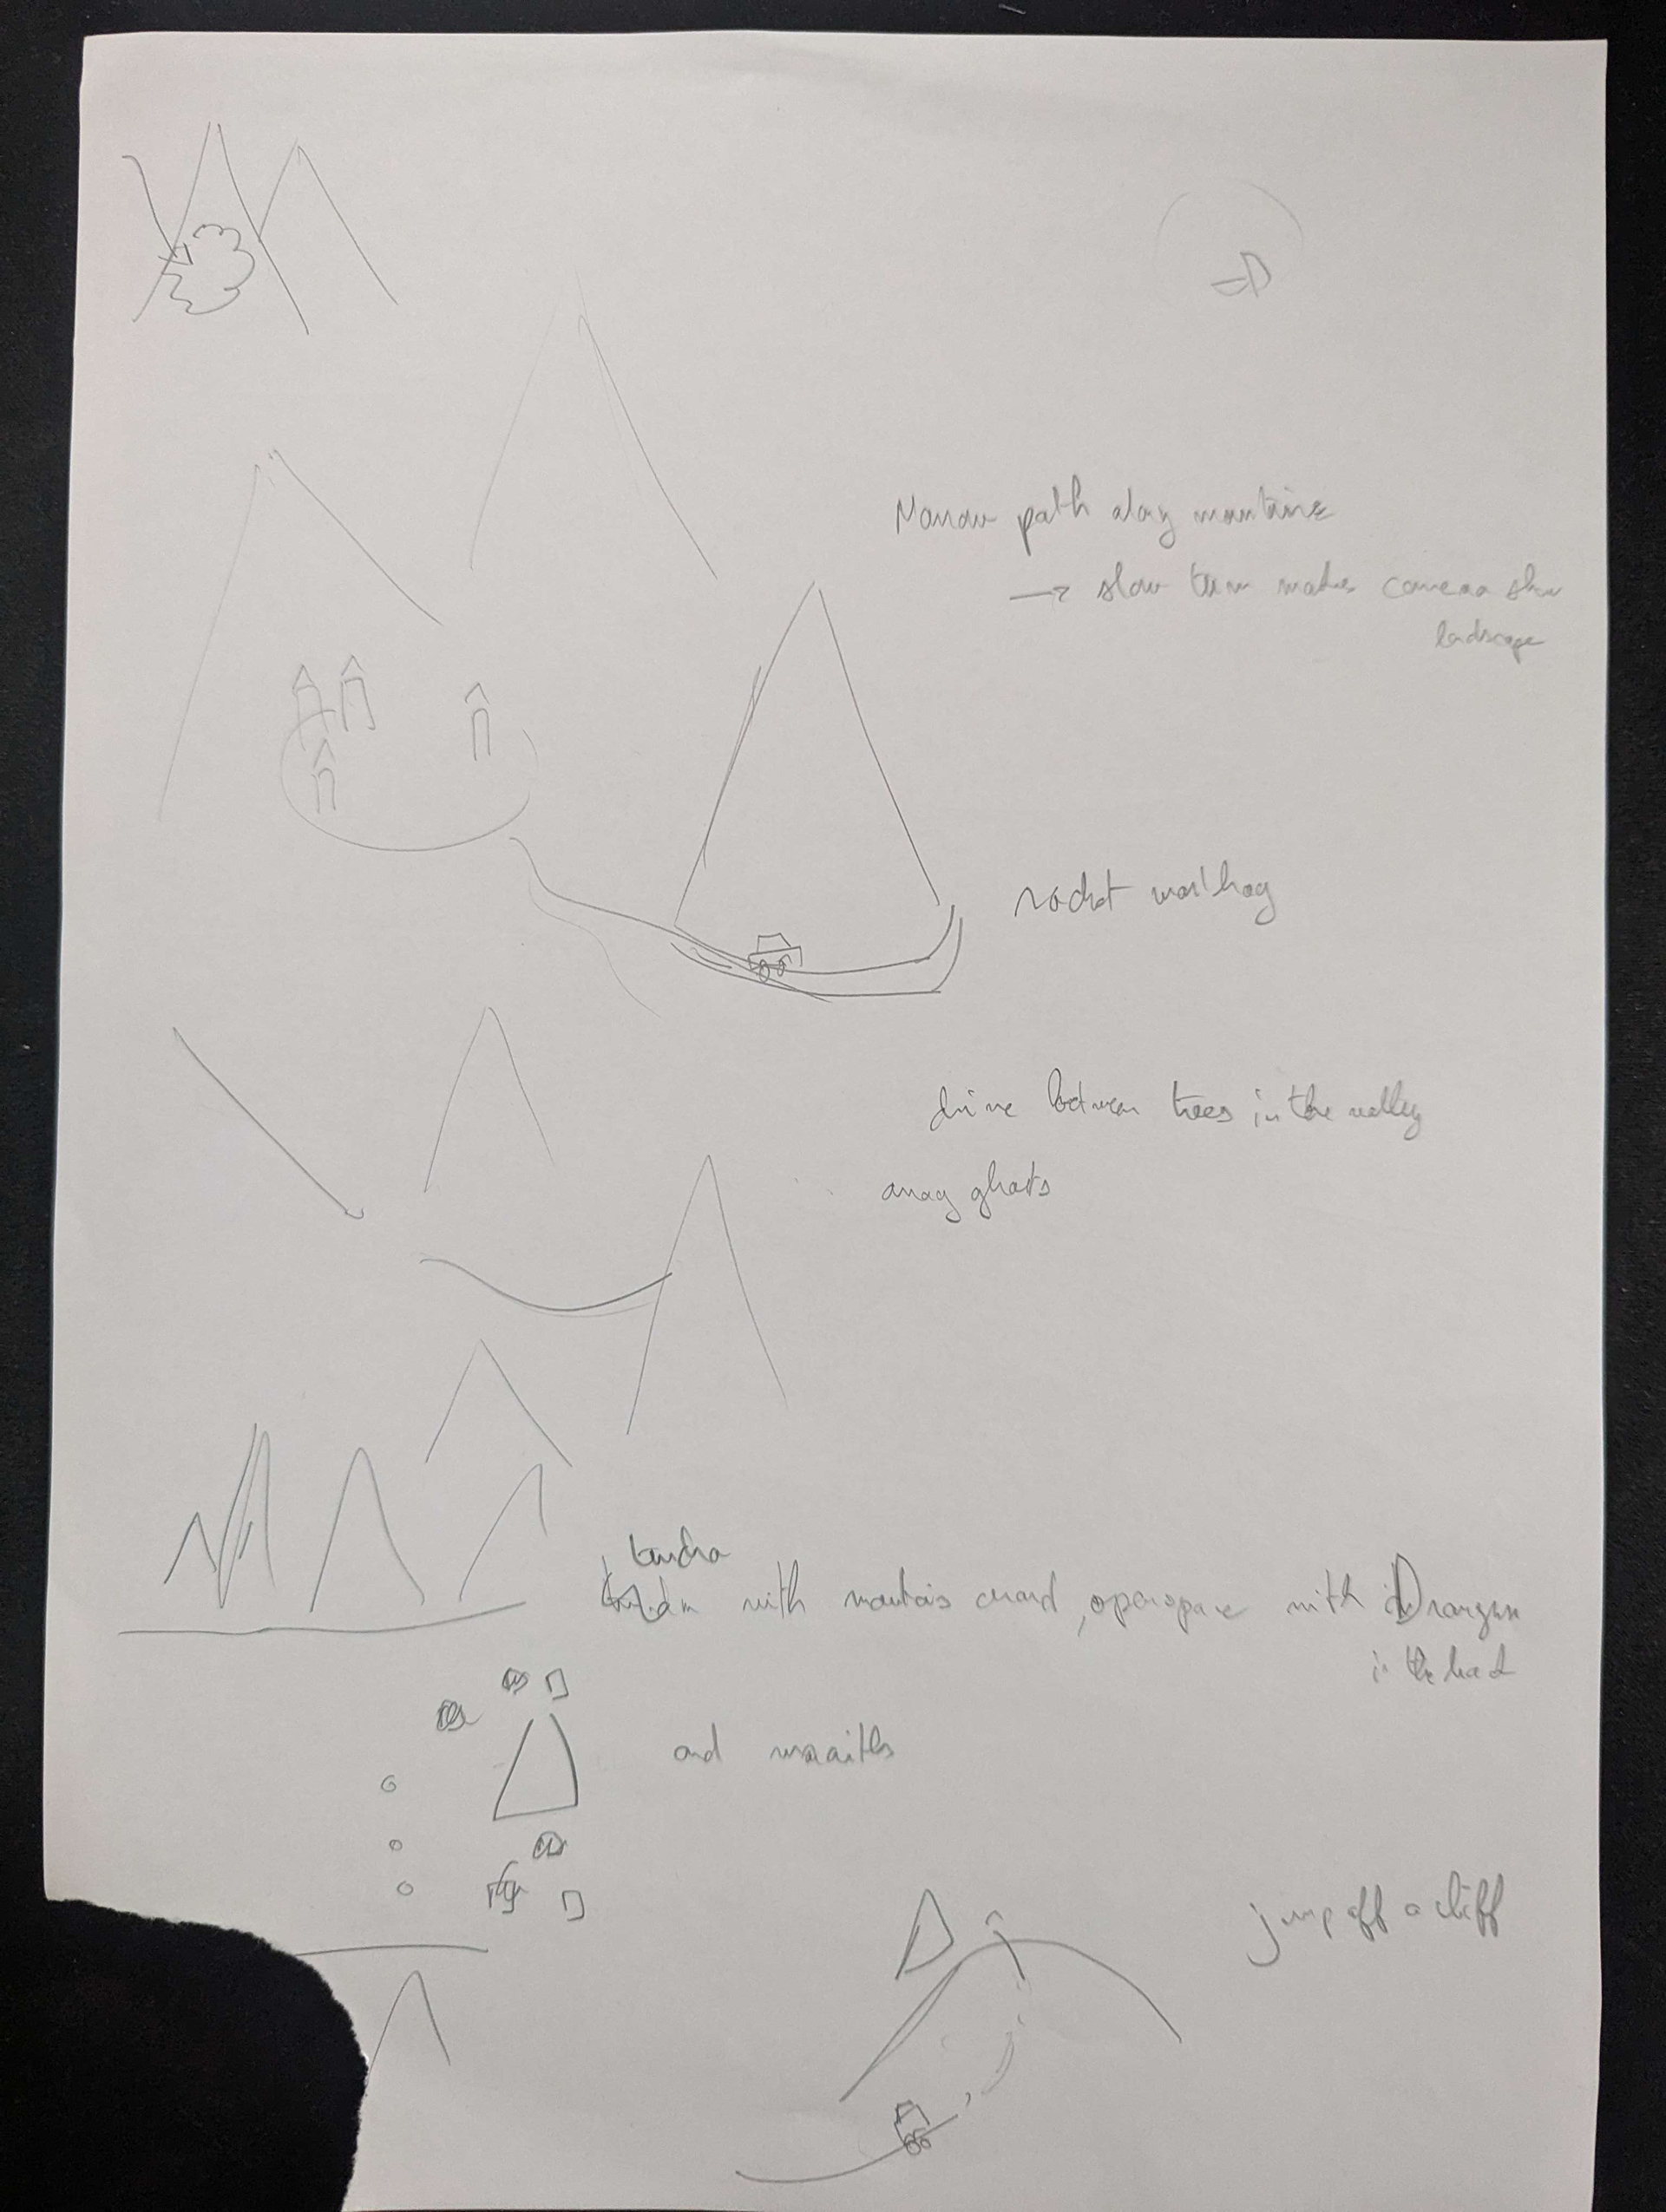 Narrow path along mountains
→ slow turn makes camera show
landscape
rocket warthog
drive between trees in the valley
ghosts
tundra
with mountains around, openspace with
in the back
and wraiths
jump off a cliff